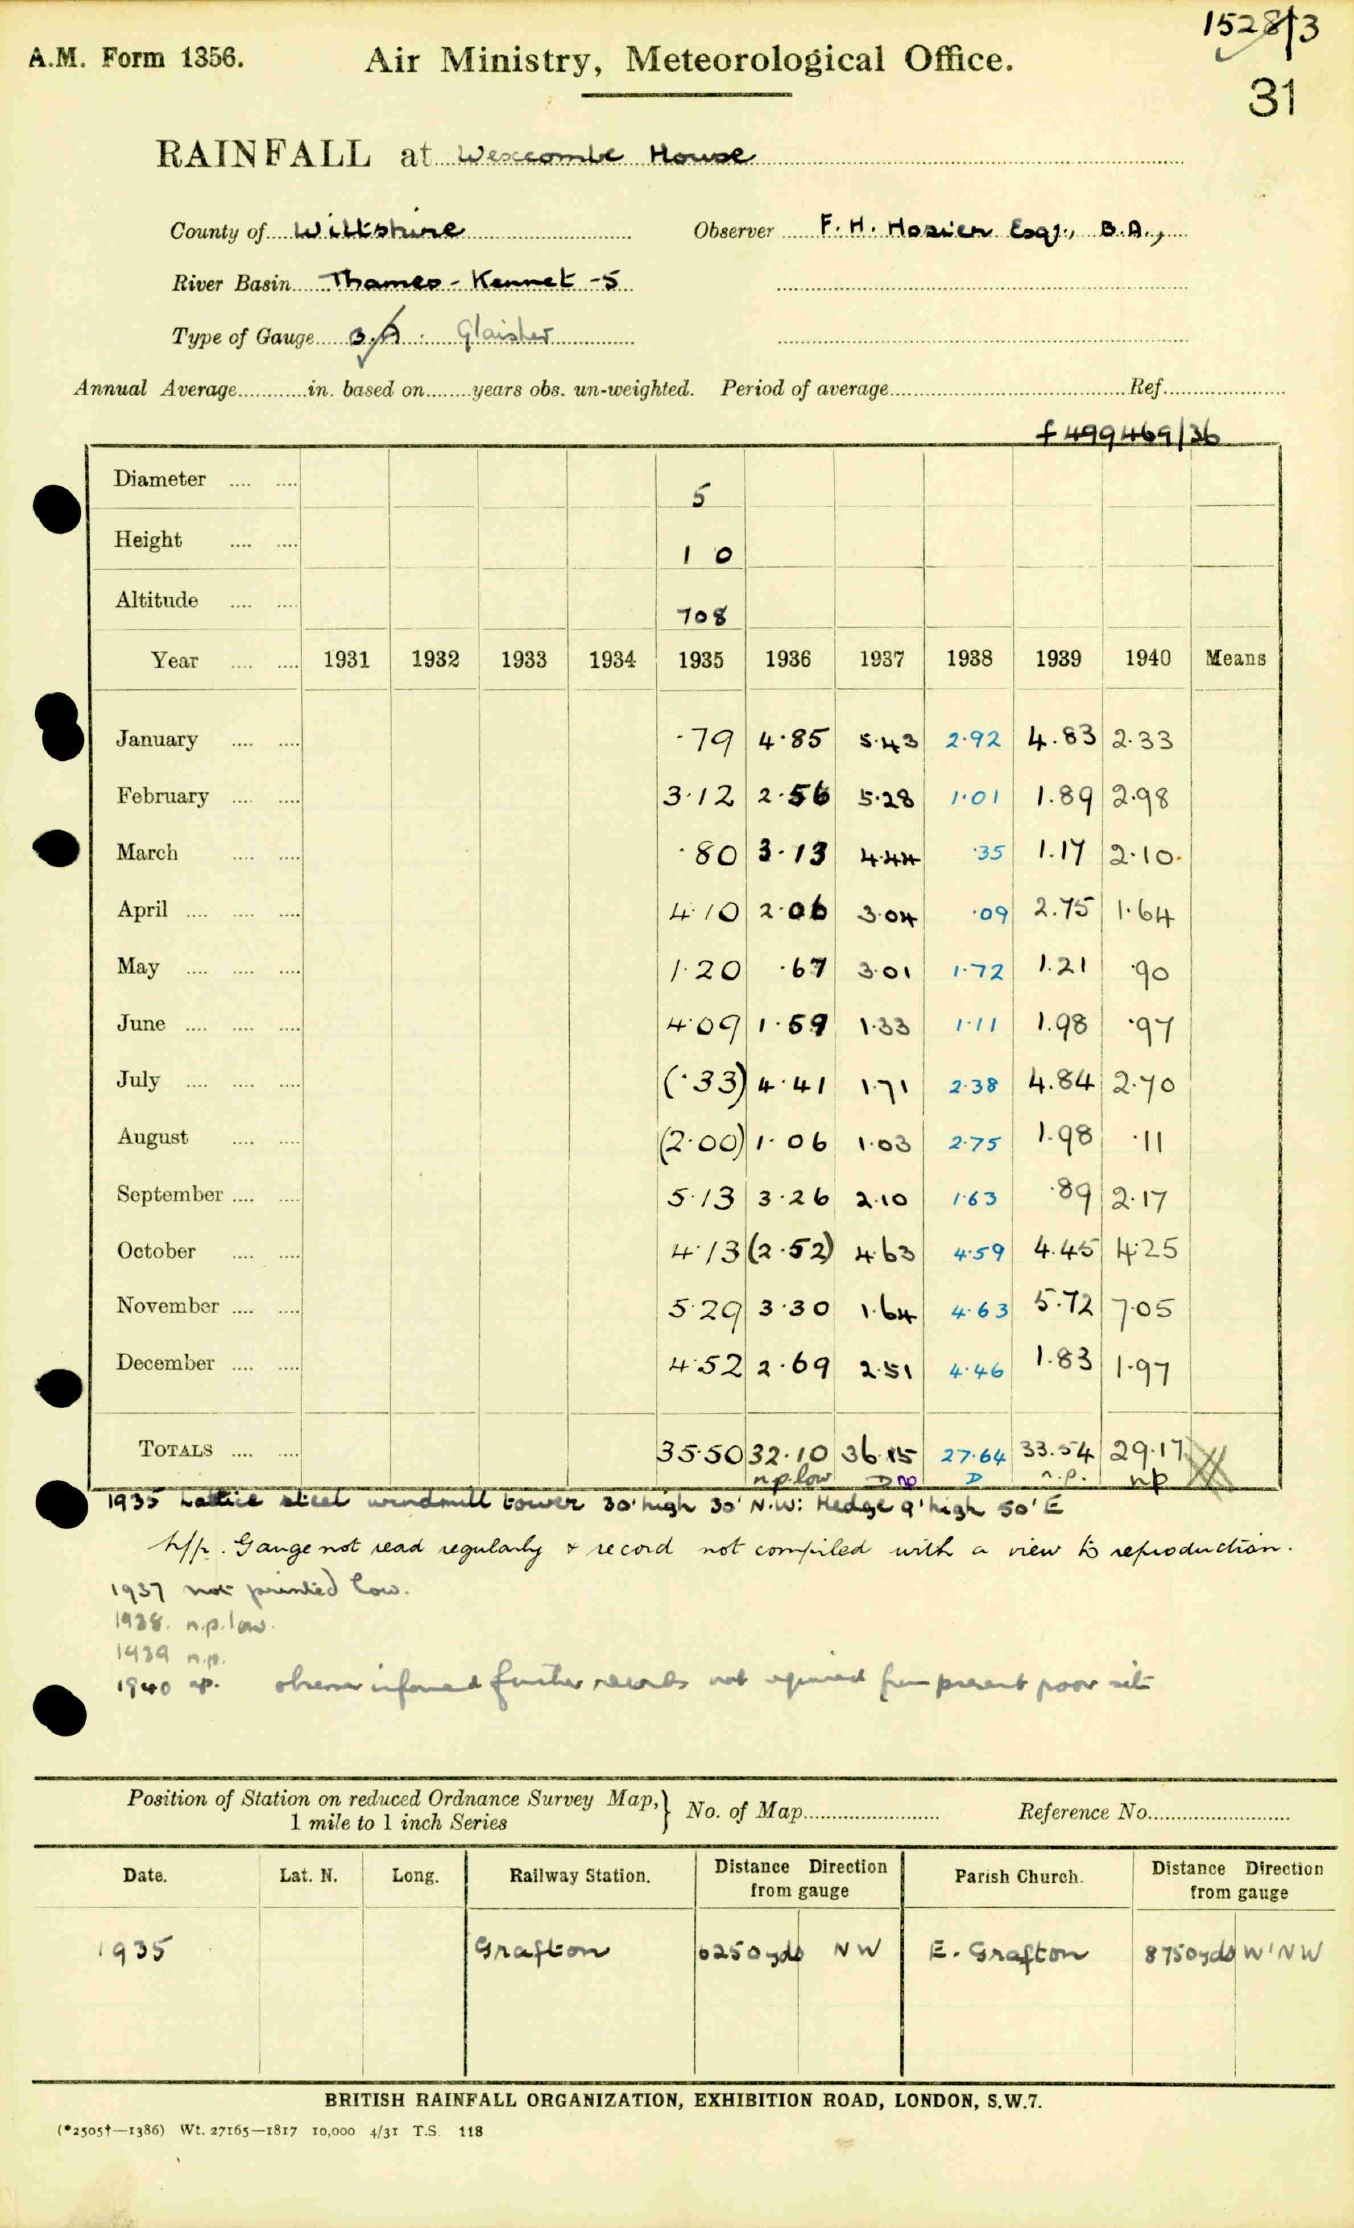 1528/3
A.M. Form 1356. Air Ministry, Meteorological Office.
31
RAINFALL at Wexcombe House
County of Wiltshire Observer F. H. Hosier Esq., B.A.,
River Basin Thames - Kennet -5
Type of Gauge B.A. Glaisher
Annual Average in. based on years obs. un-weighted. Period of average Ref.
f 499469/36
Diameter 5
Height 1 0
Altitude 708
Year 1931 1932 1933 1934 1935 1936 1937 1938 1939 1940 Means
January ·79 4·85 5·43 2·92 4.83 2·33
February 3·12 2·56 5·28 1·01 1.89 2·98
March ·80 3·13 4·44 ·35 1.17 2·10·
April 4·10 2·06 3·04 ·09 2.75 1·64
May 1·20 ·67 3·01 1·72 1.21 ·90
June 4·09 1·59 1·33 1·11 1.98 ·97
July (·33) 4·41 1·71 2·38 4.84 2·70
August (2·00) 1·06 1·03 2·75 1.98 ·11
September 5·13 3·26 2·10 1·63 ·89 2·17
October 4·13 (2·52) 4·63 4·59 4.45 4·25
November 5·29 3·30 1·64 4·63 5.72 7·05
December 4·52 2·69 2·51 4·46 1.83 1·97
TOTALS 35·50 32·10 36·15 27·64 33.54 29·17
n.p. low D np D n.p. np
1935 Lattice steel windmill tower 30' high 30' N.W: Hedge 9' high 50' E
n/p. Gauge not read regularly & record not compiled with a view to reproduction.
1937 not printed low.
1938. n.p. low.
1939 n.p.
1940 np. observer informed further records not required from present poor site
Position of Station on reduced Ordnance Survey Map, } No. of Map Reference No.
1 mile to 1 inch Series
Date. Lat. N. Long. Railway Station. Distance Direction from gauge Parish Church. Distance Direction from gauge
1935 Grafton 6250 yds NW E. Grafton 8750 yds W'NW
BRITISH RAINFALL ORGANIZATION, EXHIBITION ROAD, LONDON, S.W.7.
(*2505†—1386) Wt. 27165—1817 10,000 4/31 T.S. 118